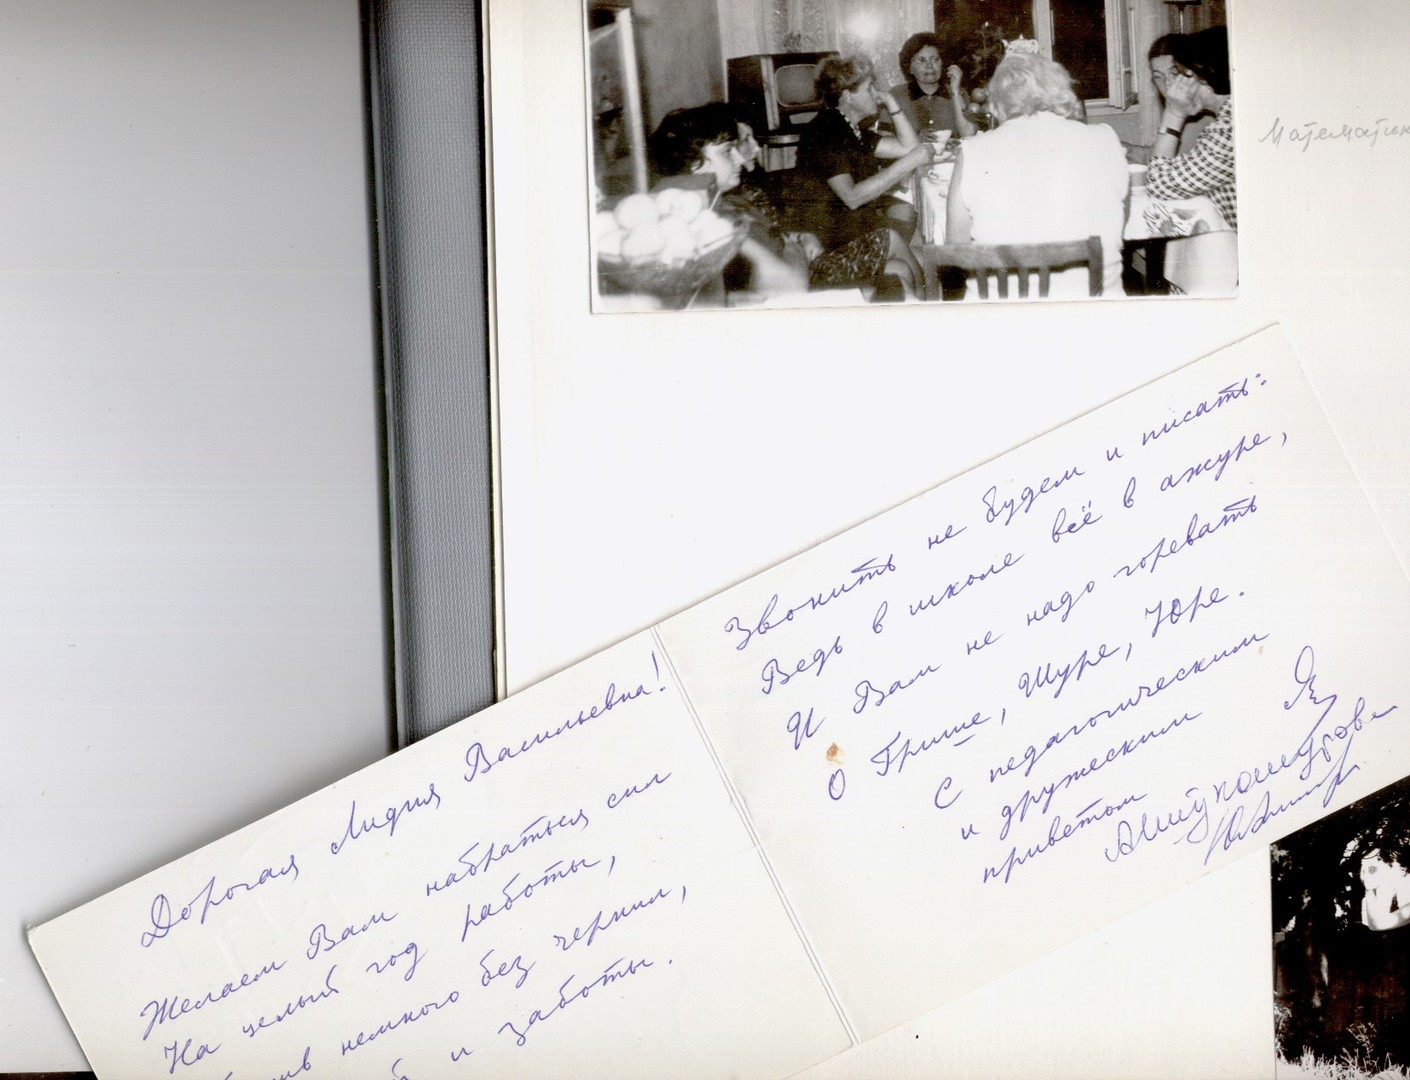 Математик
Дорогая Лидия Васильевна!
Желаем Вам набраться сил
На целый год работы,
немного без чернил,
и заботы.
Звонить не будем и писать:
Ведь в школе всё в ажуре,
И Вам не надо горевать
О Грише, Шуре, Юре.
С педагогическим
и дружеским
приветом